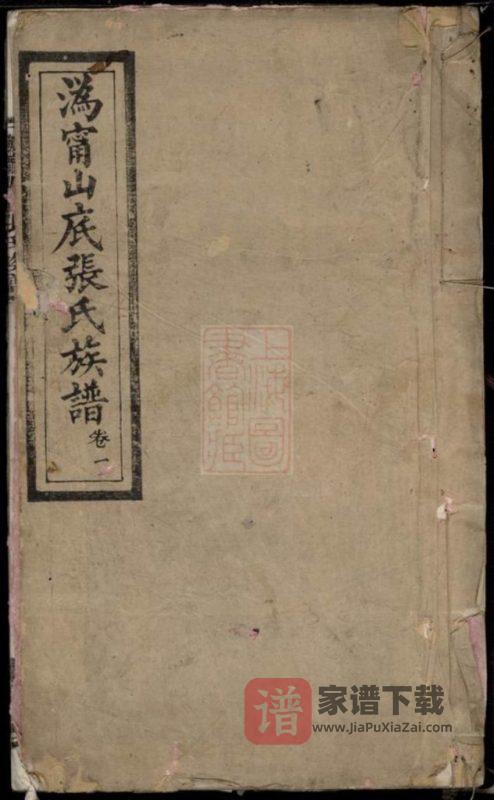 溈甯山底張氏族譜
卷一
上海圖
書館藏
谱 家谱下载
www.JiaPuXiaZai.com